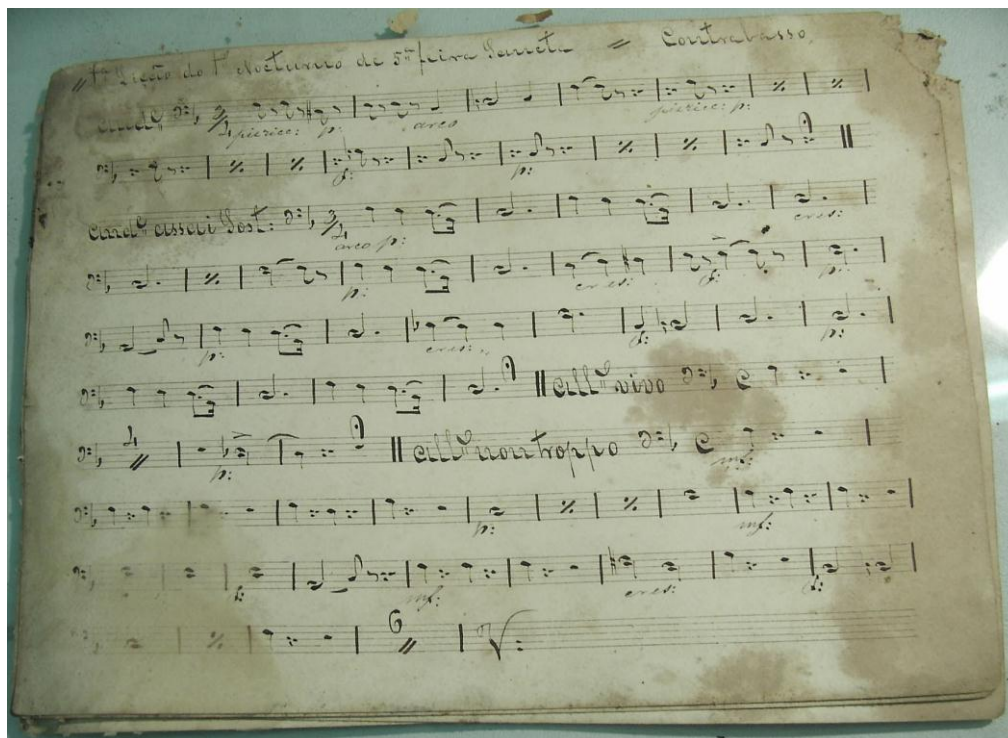 1ª Lição do 1º Nocturno de 5ª feira Sancta = Contrabasso.
Andᵉ 3/4 pizzic: p: arco pizzic: p:
f: p:
Andᵉ assai Sost: 3/4 arco p: cres:
p: cres: f: p:
p: cres: f: p:
All° vivo C
4 p: All° non troppo C mf:
p: mf:
f: mf: cres: f:
6 V: